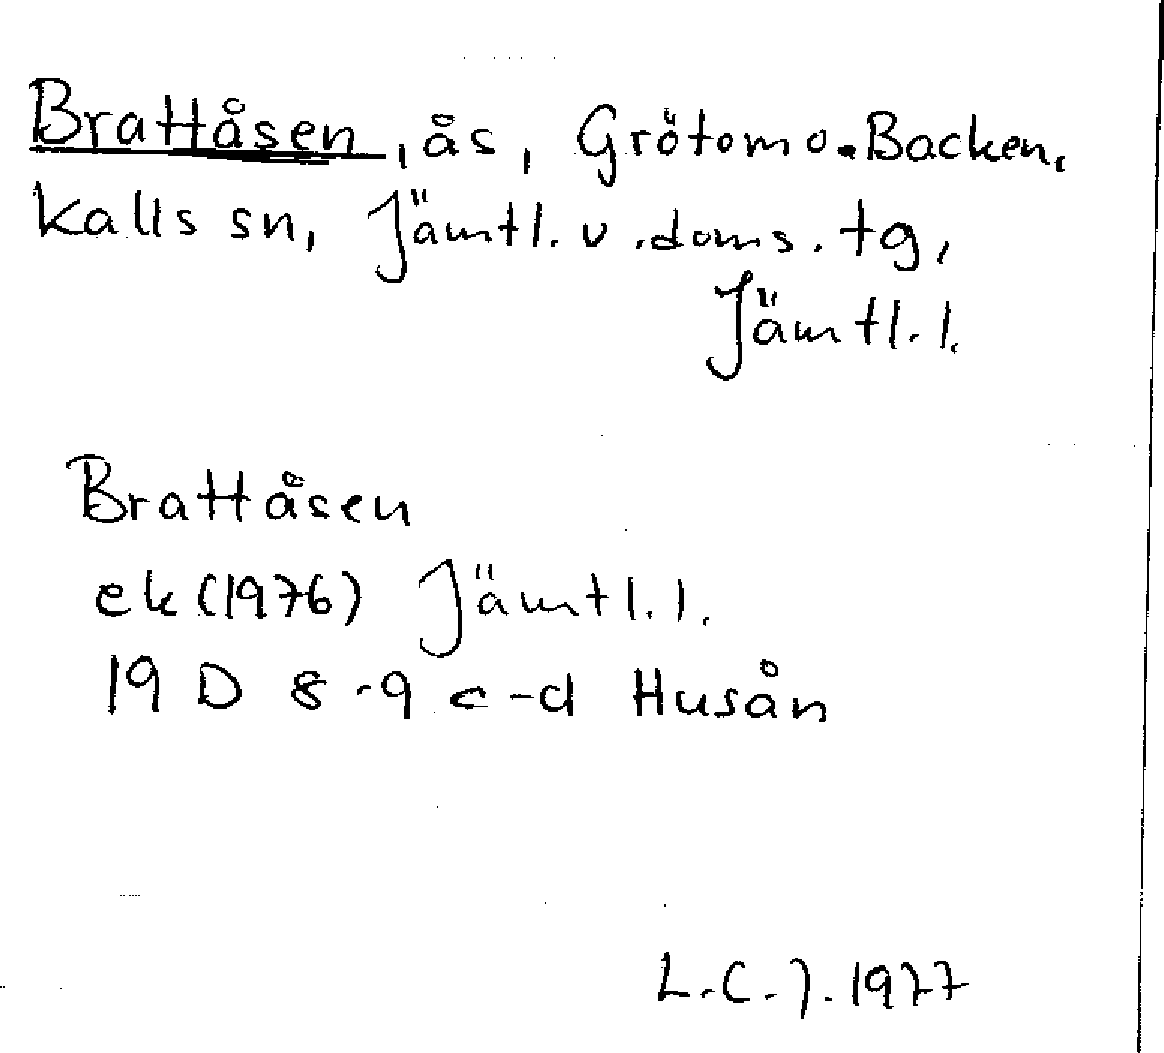 Brattåsen, ås, Grötom o. Backen,
Kalls sn, Jämtl. v. doms. tg,
Jämtl. l.
Brattåsen
ek (1976) Jämtl. l.
19 D 8-9 c-d Husån
L.C.J. 1977